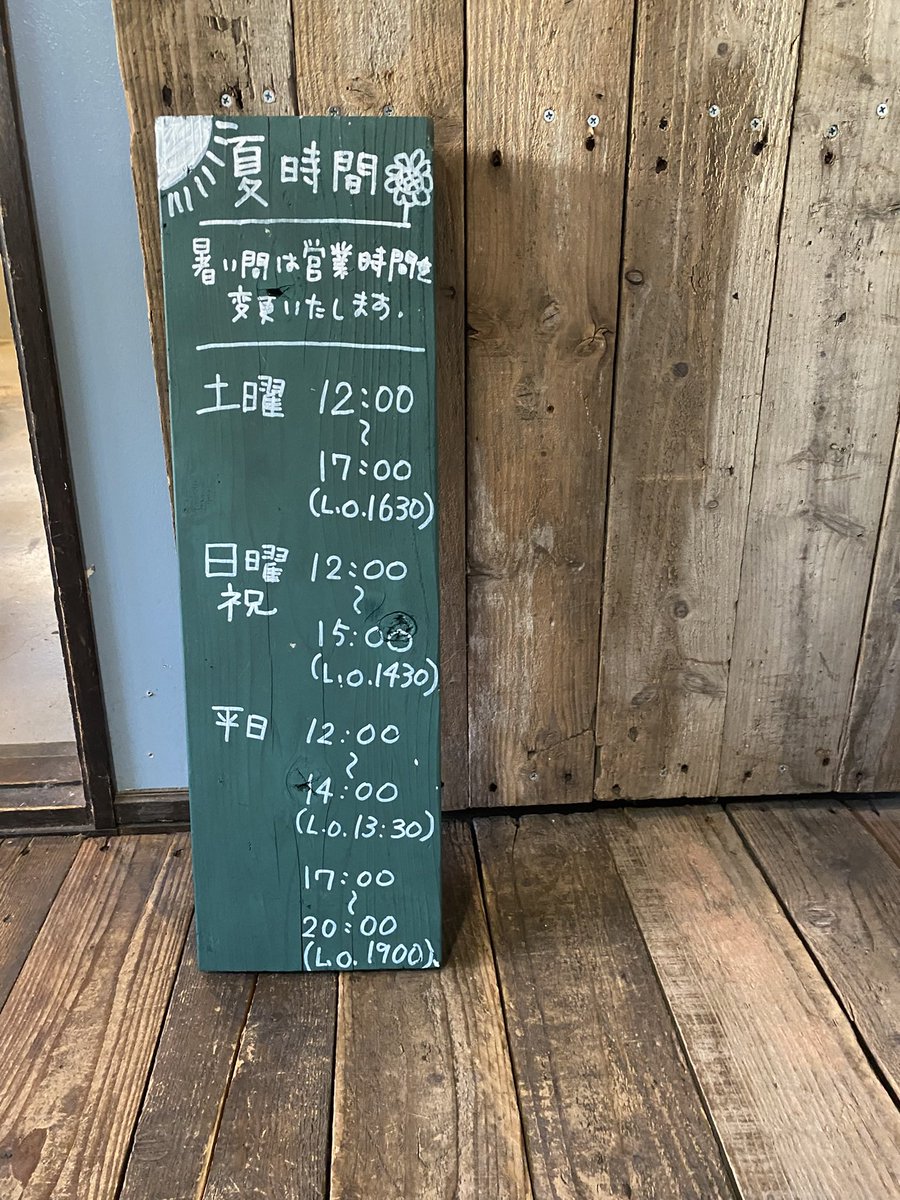 夏時間
暑い間は営業時間を
変更いたします.
土曜 12:00
~
17:00
(L.O.1630)
日曜 12:00
祝 ~
15:00
(L.O.1430)
平日 12:00
~
14:00
(L.O.13:30)
17:00
~
20:00
(L.O.1900)